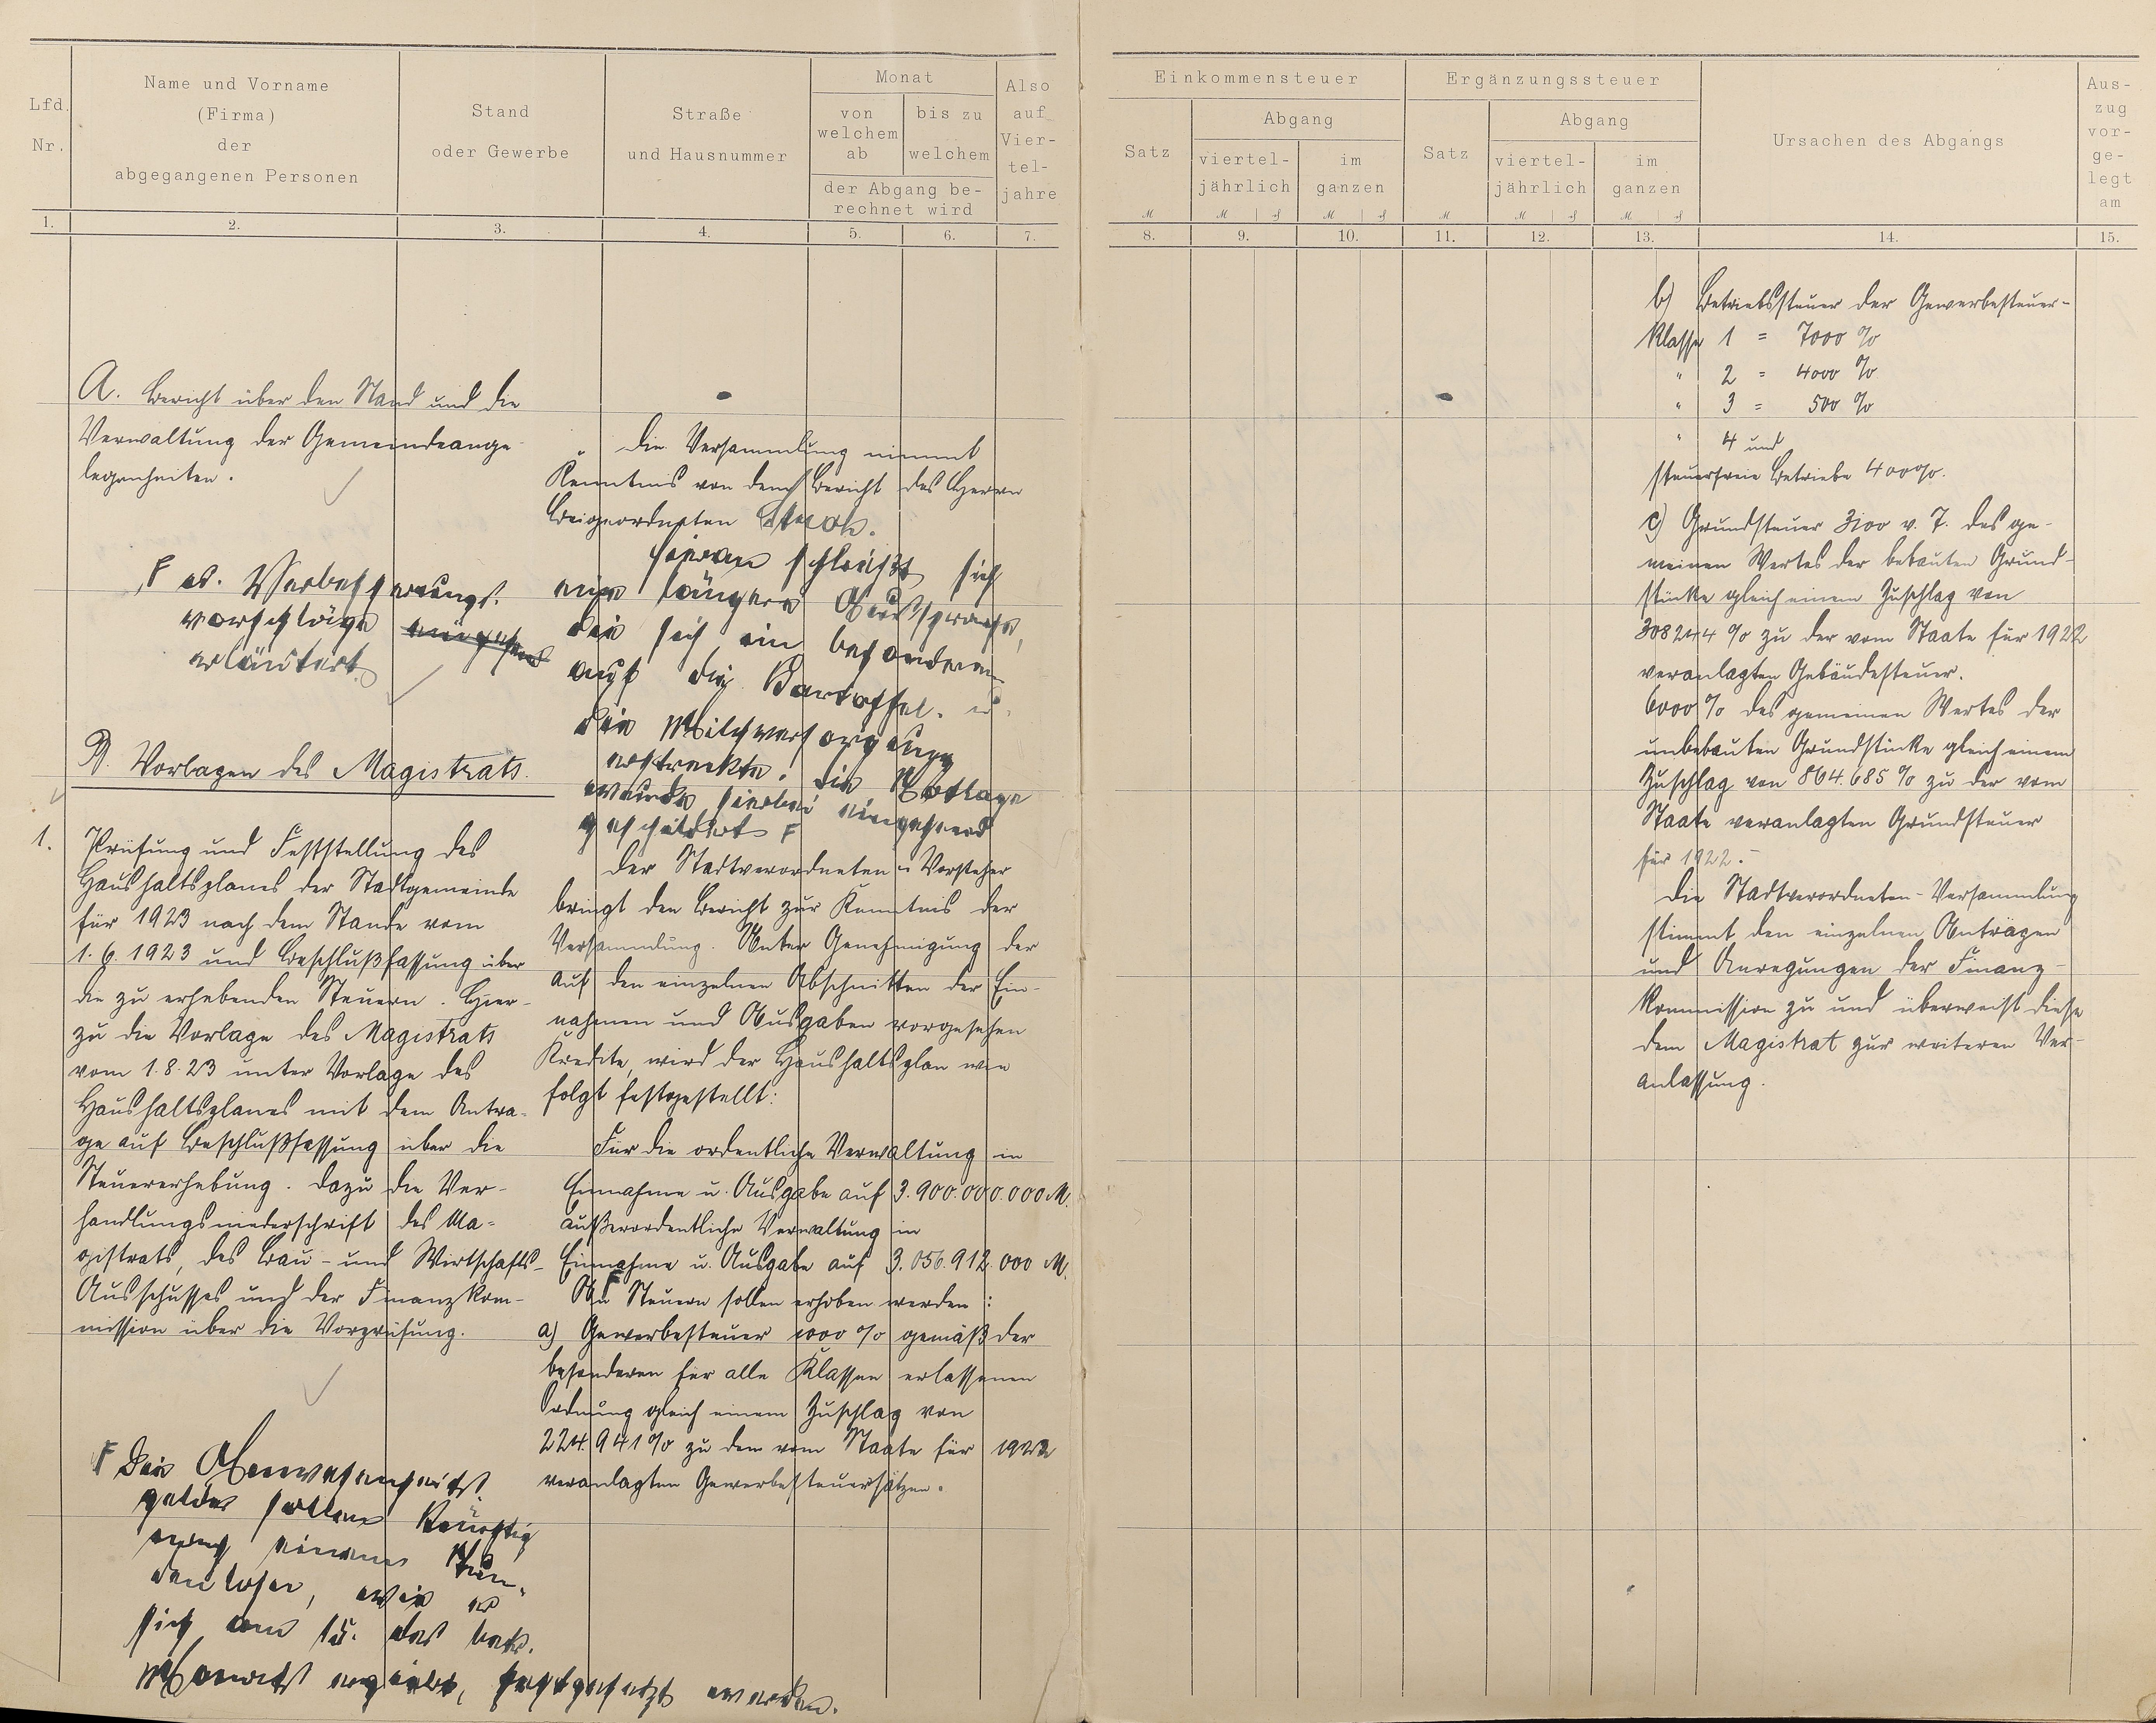 Lfd. Nr.
Name und Vorname
(Firma)
der
abgegangenen Personen
Stand
oder Gewerbe
Straße
und Hausnummer
Monat
von
welchem
ab
bis zu
welchem
der Abgang be-
rechnet wird
Also
auf
Vier-
tel-
jahre
1. 2. 3. 4. 5. 6. 7.
A. Bericht über den Stand und die
Verwaltung der Gemeindeange-
legenheiten.
F es. Verbesserungs-
vorschläge eingehend
erläutert
B. Vorlagen des Magistrats.
1. Prüfung und Feststellung des
Haushaltsplanes der Stadtgemeinde
für 1923 nach dem Stande vom
1. 6. 1923 und Beschlußfassung über
die zu erhebenden Steuern. Hier-
zu die Vorlage des Magistrats
vom 1.8.23 unter Vorlage des
Haushaltsplanes mit dem Antra-
ge auf Beschlußfassung über die
Steuererhebung. Dazu die Ver-
handlungsniederschrift des Ma-
gistrats, des Bau- und Wirtschafts-
Ausschusses und der Finanzkom-
mission über die Vorprüfung.
F Die Anwesenheits-
gelder sollen künftig
nach einem Stun-
denlohn, wie er
sich am 15. des betr.
Monats ergiebt, festgesetzt werden.
Die Versammlung nimmt
Kenntnis von dem Bericht des Herrn
Beigeordneten
Hieran schließt sich
eine längere Aussprache,
die sich im besonderen
auf die Kartoffel- u.
die Milchversorgung
erstreckte. Die Notlage
wurde hierbei eingehend
geschildert F
Der Stadtverordneten-Vorsteher
bringt den Bericht zur Kenntnis der
Versammlung. Unter Genehmigung der
auf den einzelnen Abschnitten der Ein-
nahmen und Ausgaben vorgesehen
Kredite, wird der Haushaltsplan wie
folgt festgestellt:
Für die ordentliche Verwaltung in
Einnahme u. Ausgabe auf 3.900.000.000 M.
außerordentliche Verwaltung in
Einnahme u. Ausgabe auf 3.056.912.000 M.
An Steuern sollen erhoben werden:
a) Gewerbesteuer 1000 % gemäß der
besonderen für alle Klassen erlassenen
Ordnung gleich einem Zuschlag von
224.941 % zu dem vom Staate für 1922
veranlagten Gewerbesteuersätzen.
Einkommensteuer
Satz
Abgang
viertel-
jährlich
im
ganzen
Ergänzungssteuer
Satz
Abgang
viertel-
jährlich
im
ganzen
Ursachen des Abgangs
Aus-
zug
vor-
ge-
legt
am
8. 9. 10. 11. 12. 13. 14. 15.
b) Betriebssteuer der Gewerbesteuer-
Klasse 1 = 7000 %
" 2 = 4000 %
" 3 = 500 %
" 4 und
steuerfreie Betriebe 400 %.
c) Grundsteuer 3100 v. T. des ge-
meinen Wertes der bebauten Grund-
stücke gleich einem Zuschlag von
308244 % zu der vom Staate für 1922
veranlagten Gebäudesteuer.
6000 % des gemeinen Wertes der
unbebauten Grundstücke gleich einem
Zuschlag von 864.685 % zu der vom
Staate veranlagten Grundsteuer
für 1922.
Die Stadtverordneten-Versammlung
stimmt den einzelnen Anträgen
und Anregungen der Finanz-
kommission zu und überweist diese
dem Magistrat zur weiteren Ver-
anlassung.